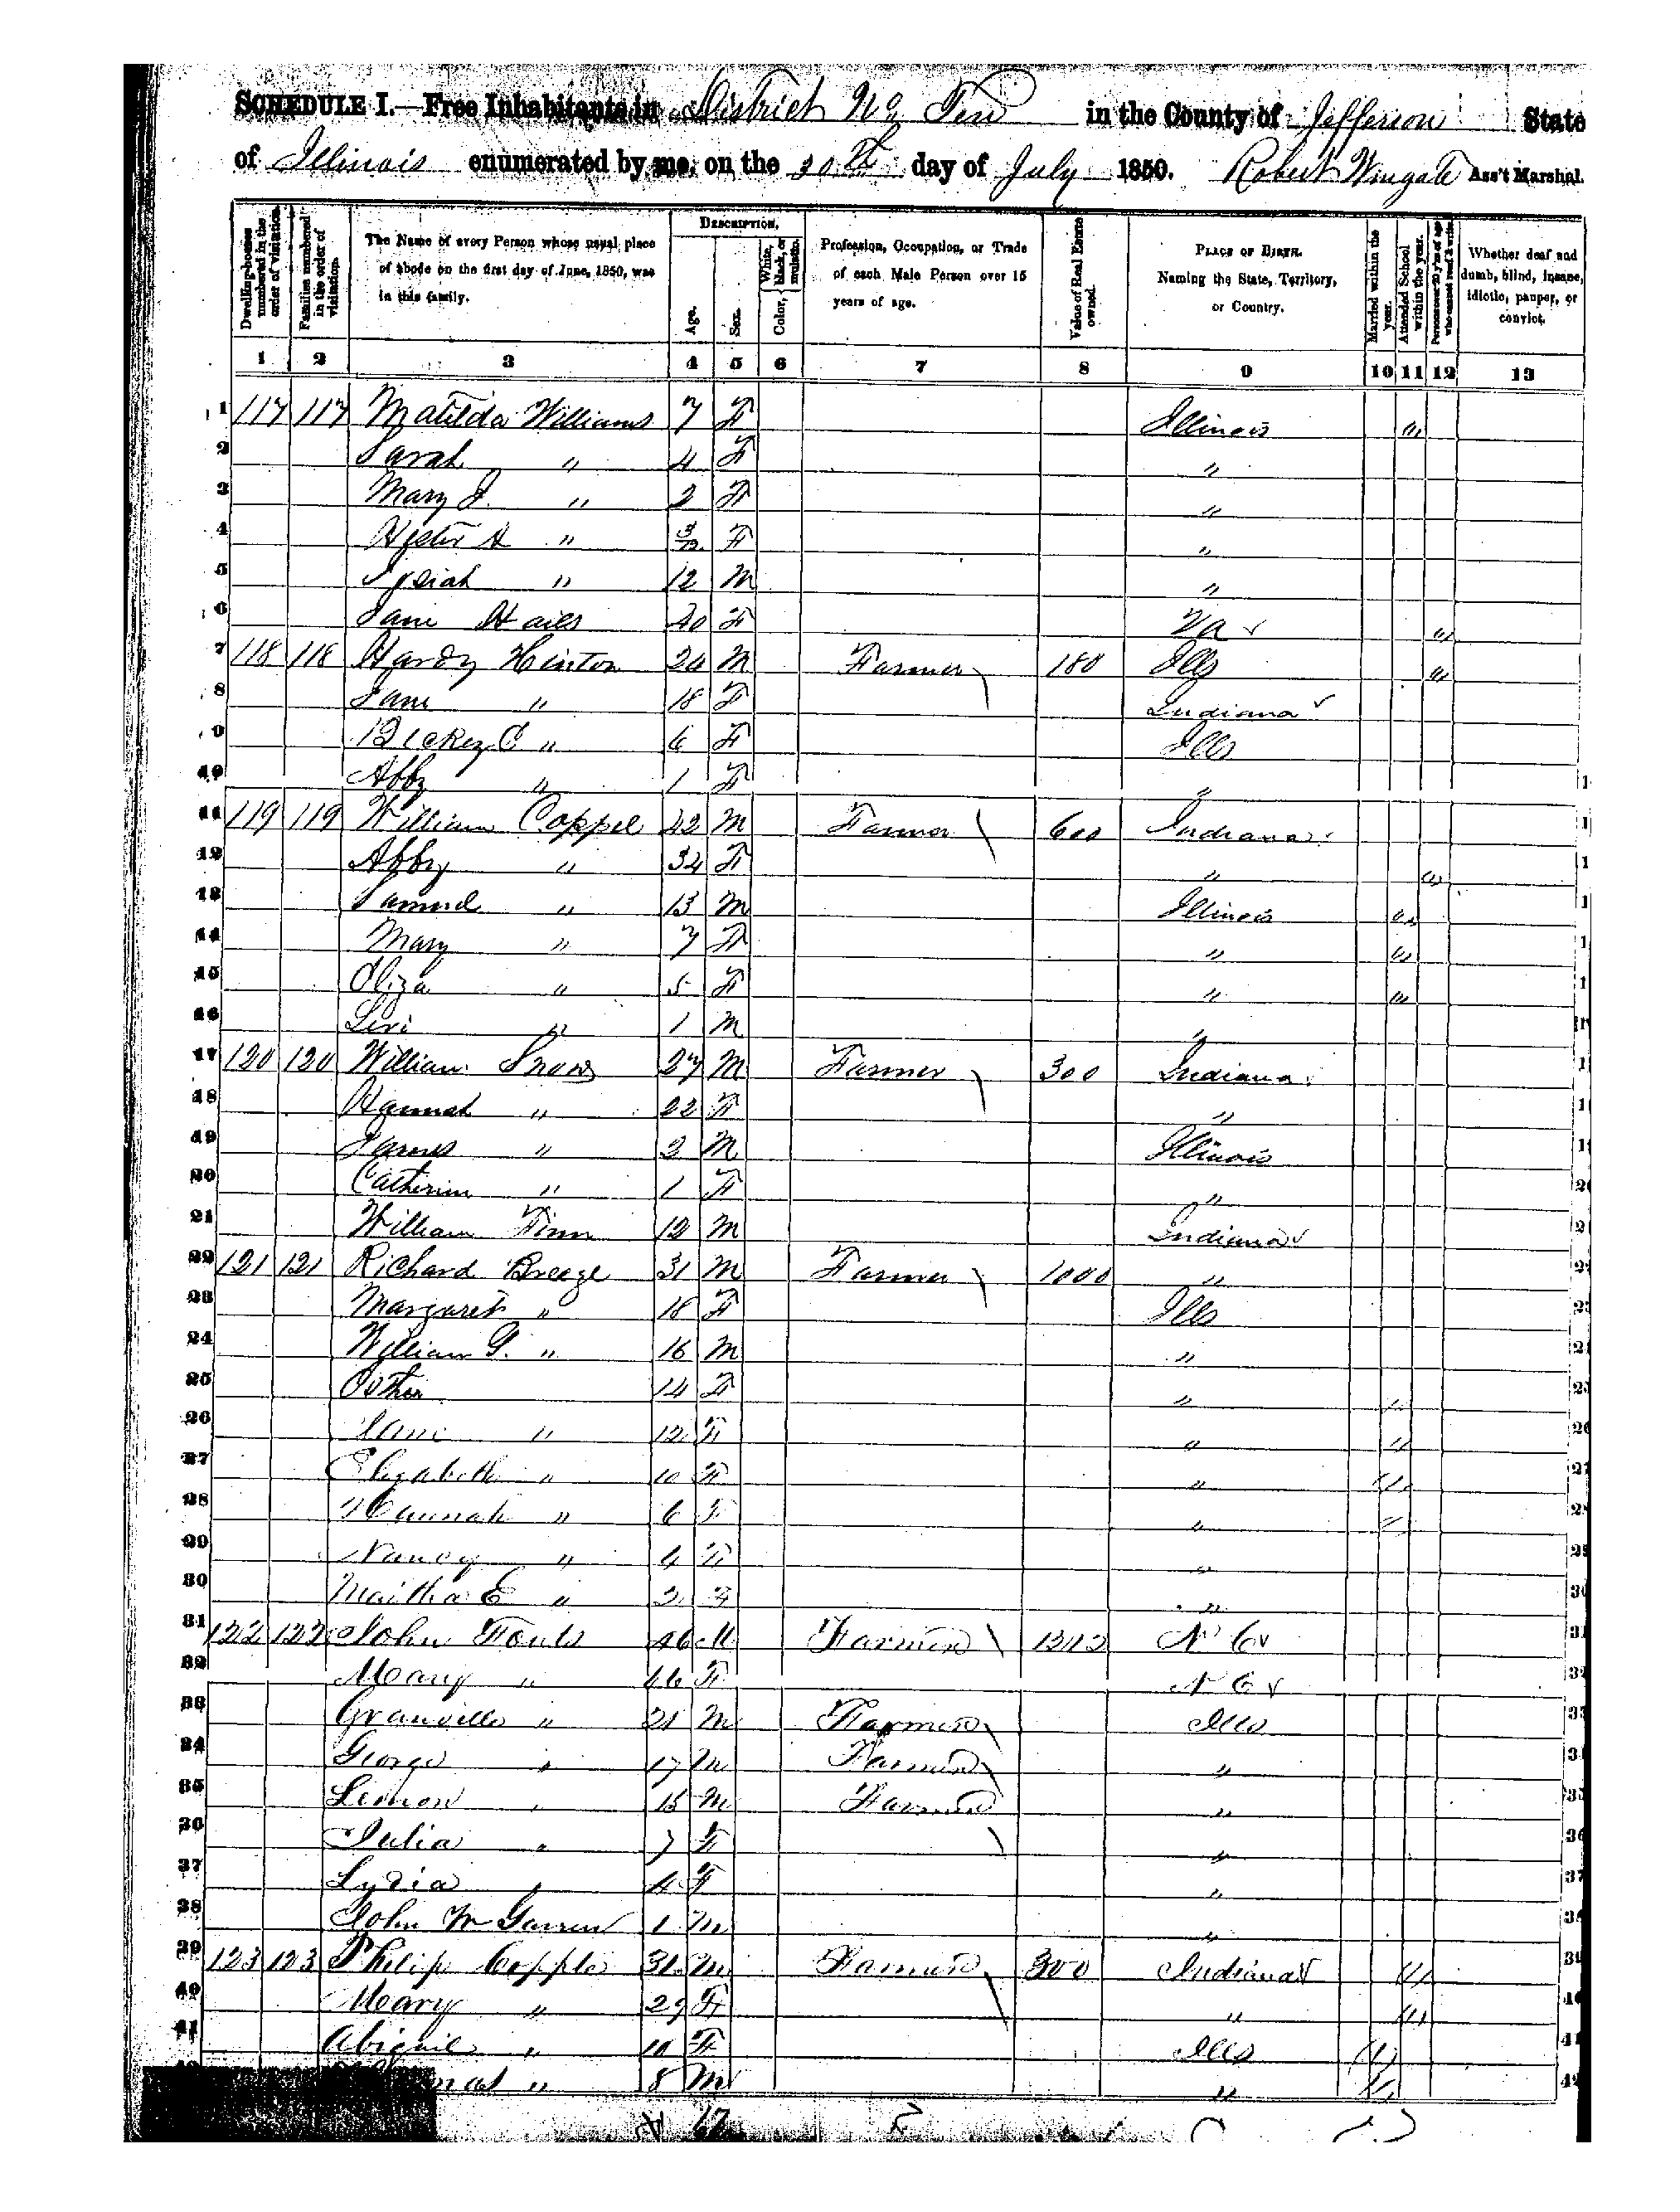 SCHEDULE I.—Free Inhabitants in District No Ten in the County of Jefferson State
of Illinois enumerated by me, on the 30th day of July 1850. Robert Wingate Ass't Marshal.
Dwelling-houses numbered in the order of visitation.
Families numbered in the order of visitation.
The Name of every Person whose usual place of abode on the first day of June, 1850, was in this family.
DESCRIPTION.
Age.
Sex.
Color, White, black, or mulatto.
Profession, Occupation, or Trade of each Male Person over 15 years of age.
Value of Real Estate owned.
PLACE OF BIRTH. Naming the State, Territory, or Country.
Married within the year.
Attended School within the year.
Persons over 20 y'rs of age who cannot read & write.
Whether deaf and dumb, blind, insane, idiotic, pauper, or convict.
1 2 3 4 5 6 7 8 9 10 11 12 13
1 117 117 Matilda Williams 7 F Illinois "
2 Sarah " 4 F "
3 Mary J. " 2 F "
4 Hester A " 3/12 F "
5 " 12 M "
6 Jane Hails 40 F Va "
7 118 118 Hardy Hinton 24 M Farmer 180 Ills "
8 Jane " 18 F Indiana
9 C " 6 F Ills
10 Abby " 1 F "
11 119 119 William Copple 42 M Farmer 600 Indiana
12 Abby " 34 F " "
13 Samuel " 13 M Illinois "
14 Mary " 7 F " "
15 Eliza " 5 F " "
16 Levi " 1 M "
17 120 120 William Snow 27 M Farmer 300 Indiana
18 Hannah " 22 F "
19 James " 2 M Illinois
20 Catherine " 1 F "
21 William Finn 12 M Indiana
22 121 121 Richard Breeze 31 M Farmer 1000 "
23 Margaret " 18 F Ills
24 William G. " 16 M "
25 Esther 14 F " "
26 Jane " 12 F " "
27 Elizabeth " 10 F " "
28 Hannah " 6 F " "
29 Nancy " 4 F "
30 Martha E " 2 F "
31 122 122 John Fouts 46 M Farmer N C
32 Mary " 46 F N C
33 Granville " 21 M Farmer Ills
34 George " 17 M Farmer "
35 Lemon " 15 M Farmer "
36 Julia " 7 F "
37 Lydia " 4 F "
38 John 1 M "
39 123 123 Philip Copple 31 M Farmer 300 Indiana "
40 Mary " 29 F " "
41 Abigail " 10 F Ills "
42 " 8 M " "